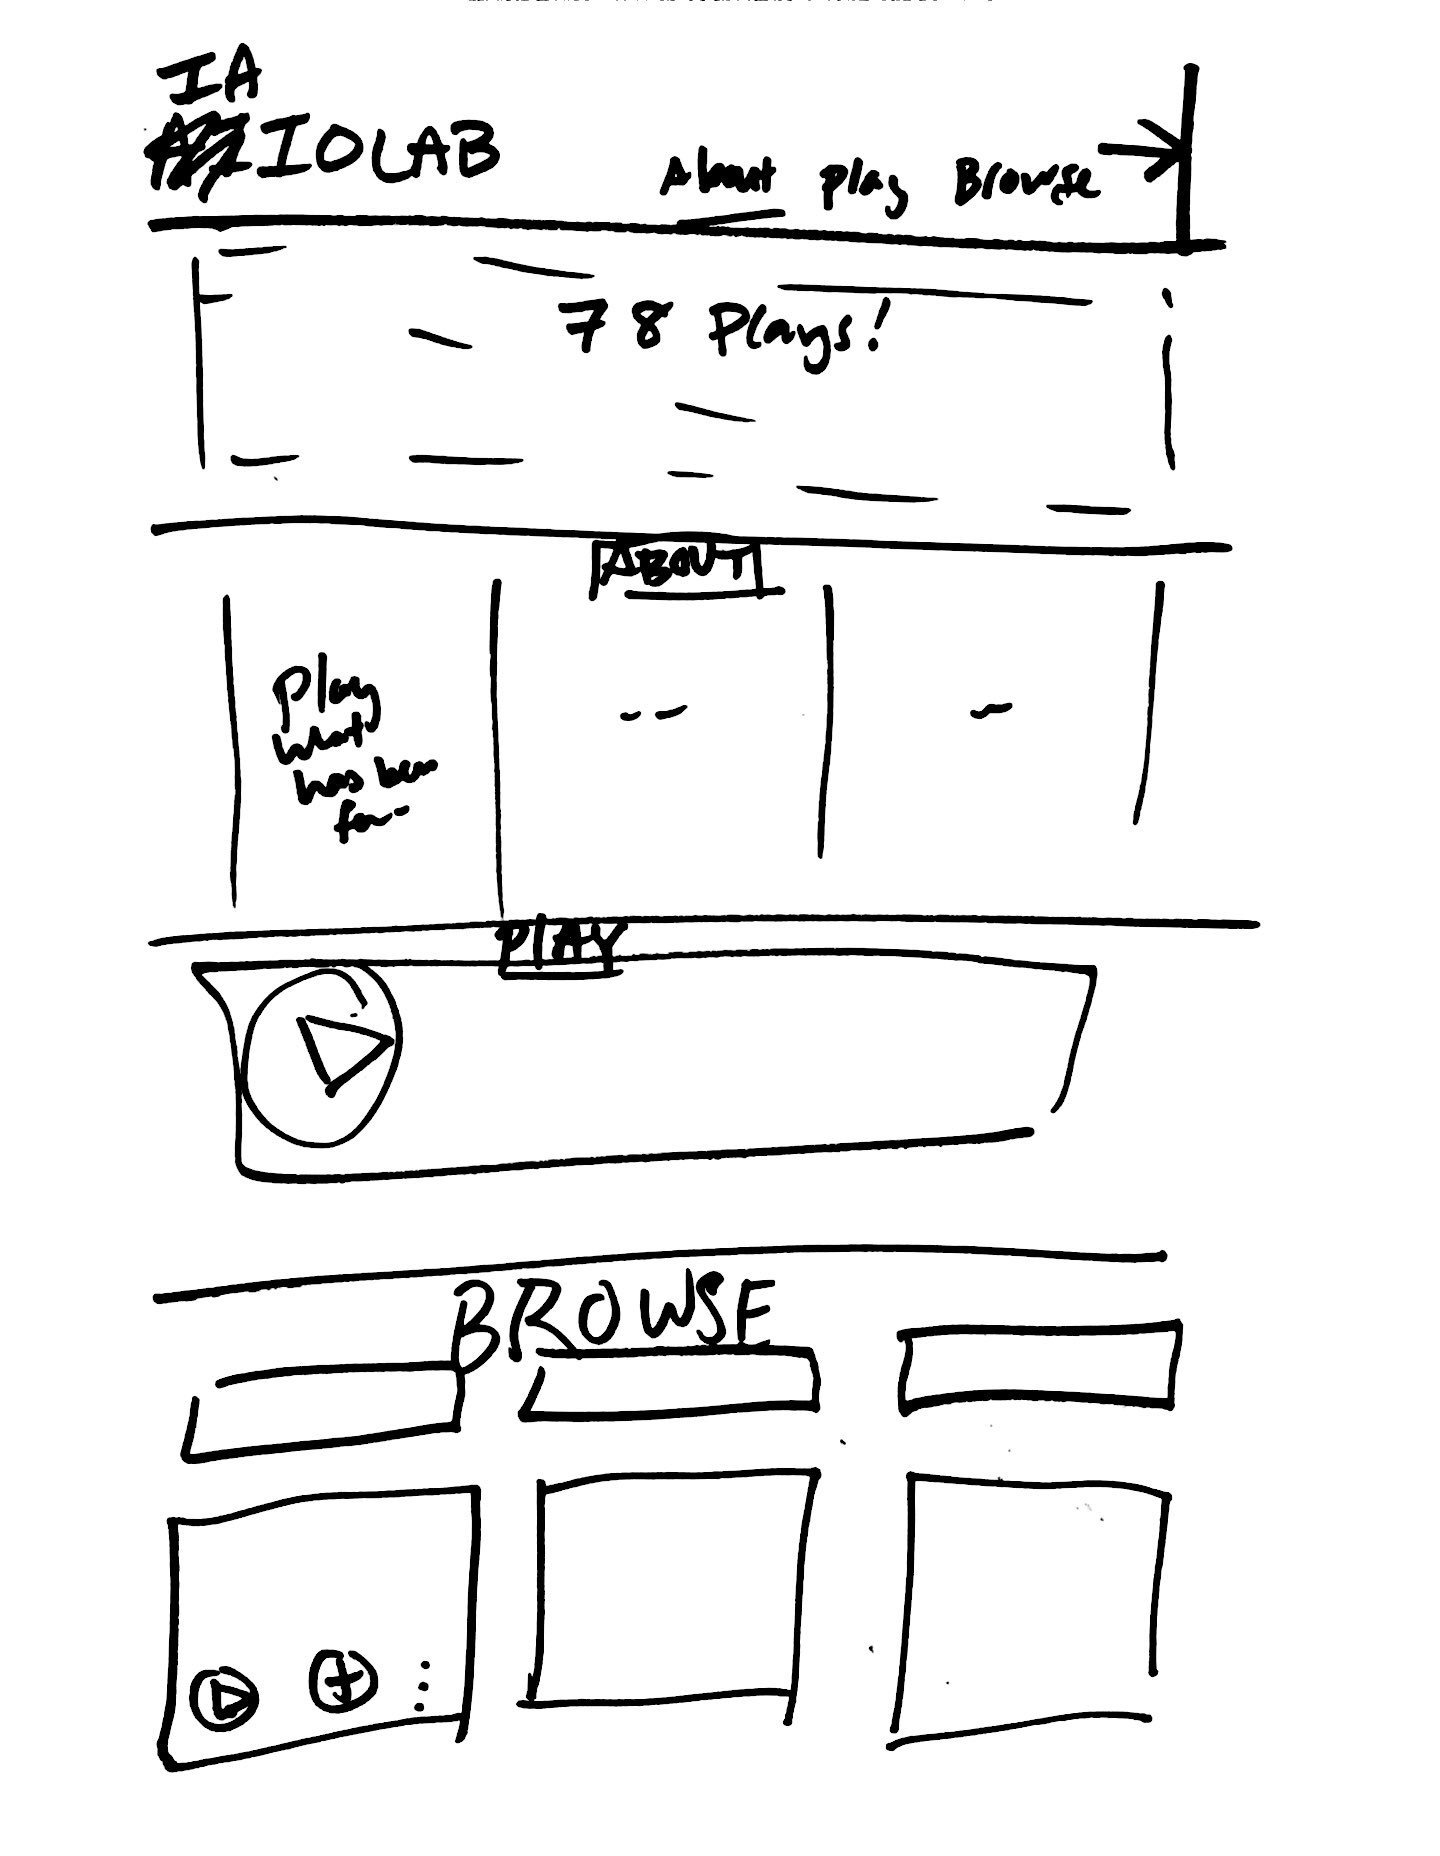 IA
IOLAB
About Play Browse
78 Plays!
ABOUT
Play
what
has been
PLAY
BROWSE